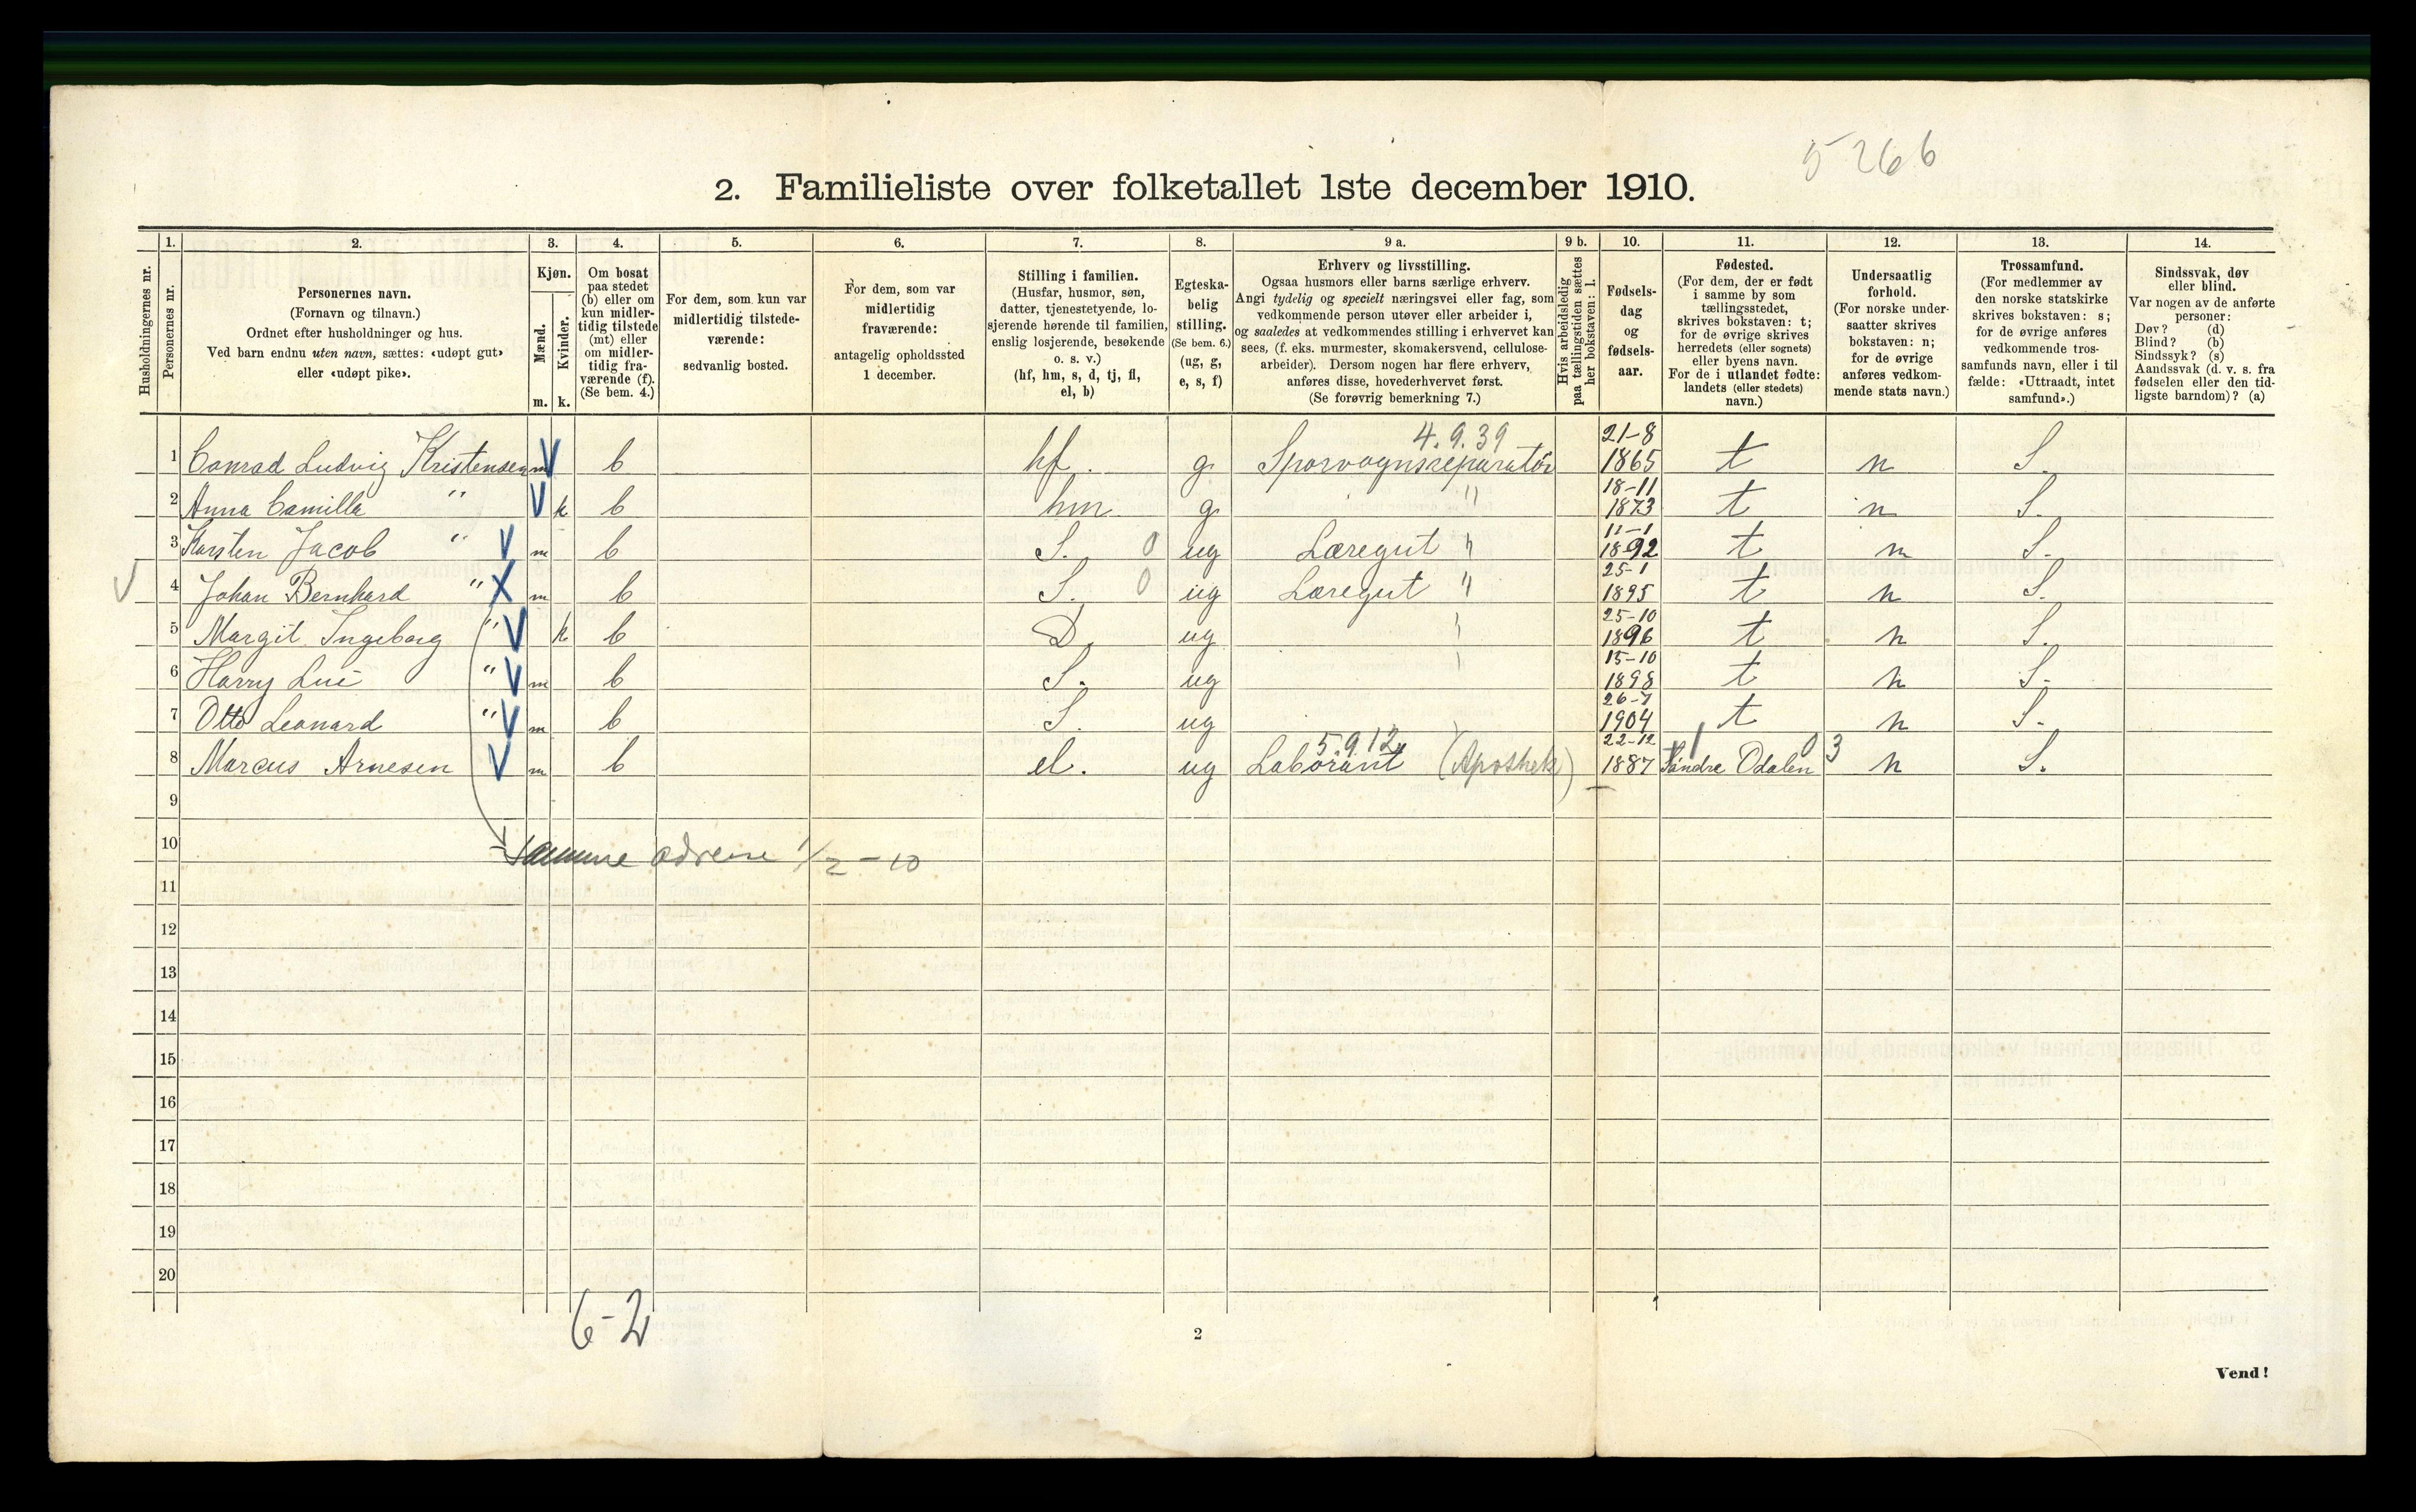 5266
2. Familieliste over folketallet 1ste december 1910.
Husholdningernes nr.
1.
Personernes nr.
2.
Personernes navn.
(Fornavn og tilnavn.)
Ordnet efter husholdninger og hus.
Ved barn endnu uten navn, sættes: «udøpt gut»
eller «udøpt pike».
3.
Kjøn.
Mænd.
Kvinder.
m. k.
4.
Om bosat
paa stedet
(b) eller om
kun midler-
tidig tilstede
(mt) eller
om midler-
tidig fra-
værende (f).
(Se bem. 4.)
5.
For dem, som kun var
midlertidig tilstede-
værende:
sedvanlig bosted.
6.
For dem, som var
midlertidig
fraværende:
antagelig opholdssted
1 december.
7.
Stilling i familien.
(Husfar, husmor, søn,
datter, tjenestetyende, lo-
sjerende hørende til familien,
enslig losjerende, besøkende
o. s. v.)
(hf, hm, s, d, tj, fl,
el, b)
8.
Egteska-
belig
stilling.
(Se bem. 6.)
(ug, g,
e, s, f)
9 a.
Erhverv og livsstilling.
Ogsaa husmors eller barns særlige erhverv.
Angi tydelig og specielt næringsvei eller fag, som
vedkommende person utøver eller arbeider i,
og saaledes at vedkommendes stilling i erhvervet kan
sees, (f. eks. murmester, skomakersvend, cellulose-
arbeider). Dersom nogen har flere erhverv,
anføres disse, hovederhvervet først.
(Se forøvrig bemerkning 7.)
9 b.
Hvis arbeidsledig
paa tællingstiden sættes
her bokstaven: l.
10.
Fødsels-
dag
og
fødsels-
aar.
11.
Fødested.
(For dem, der er født
i samme by som
tællingsstedet,
skrives bokstaven: t;
for de øvrige skrives
herredets (eller sognets)
eller byens navn.
For de i utlandet fødte:
landets (eller stedets)
navn.)
12.
Undersaatlig
forhold.
(For norske under-
saatter skrives
bokstaven: n;
for de øvrige
anføres vedkom-
mende stats navn.)
13.
Trossamfund.
(For medlemmer av
den norske statskirke
skrives bokstaven: s;
for de øvrige anføres
vedkommende tros-
samfunds navn, eller i til
fælde: «Uttraadt, intet
samfund».)
14.
Sindssvak, døv
eller blind.
Var nogen av de anførte
personer:
Døv? (d)
Blind? (b)
Sindssyk? (s)
Aandssvak (d. v. s. fra
fødselen eller den tid-
ligste barndom)? (a)
4.9.39
1 Conrad Ludvig Kristensen m V b hf. g Sporvognsreparatör 21-8 1865 t n S.
2 Anna Camilla " V k b hm g " 18-11 1873 t n S.
3 Karsten Jacob " V m b S. 0 ug Læregut " 11-1 1892 t n S.
4 Johan Bernhard " X m b S. 0 ug Læregut " 25-1 1895 t n S.
5 Margit Ingeborg " V k b D. ug 25-10 1896 t n S.
6 Harry Lui " V m b S. ug 15-10 1898 t n S.
7 Otto Leonard " V m b S. ug 26-7 1904 t n S.
5.9.12
8 Marcus Arnesen V m b el. ug Laborant (Apothek) 22-12 1887 Søndre Odalen 03 n S.
9
10 samme adresse 1/2-10
11
12
13
14
15
16
17
18
19
20
6-2
2
Vend!